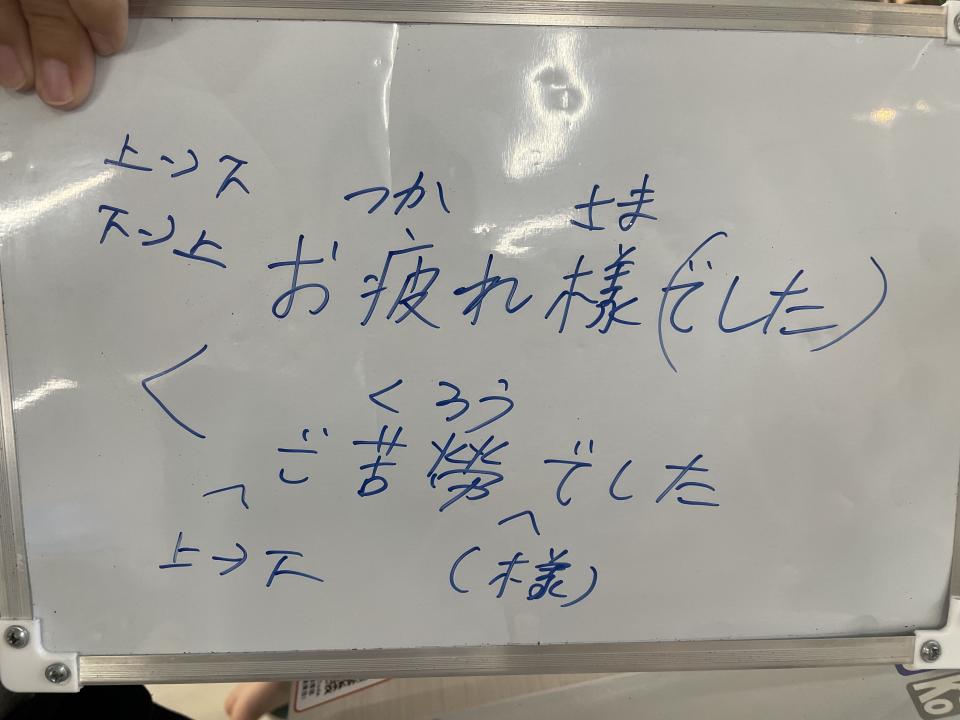 上→下
下→上
つか さま
お疲れ様(でした)
くろう
ご苦労でした
上→下 (様)